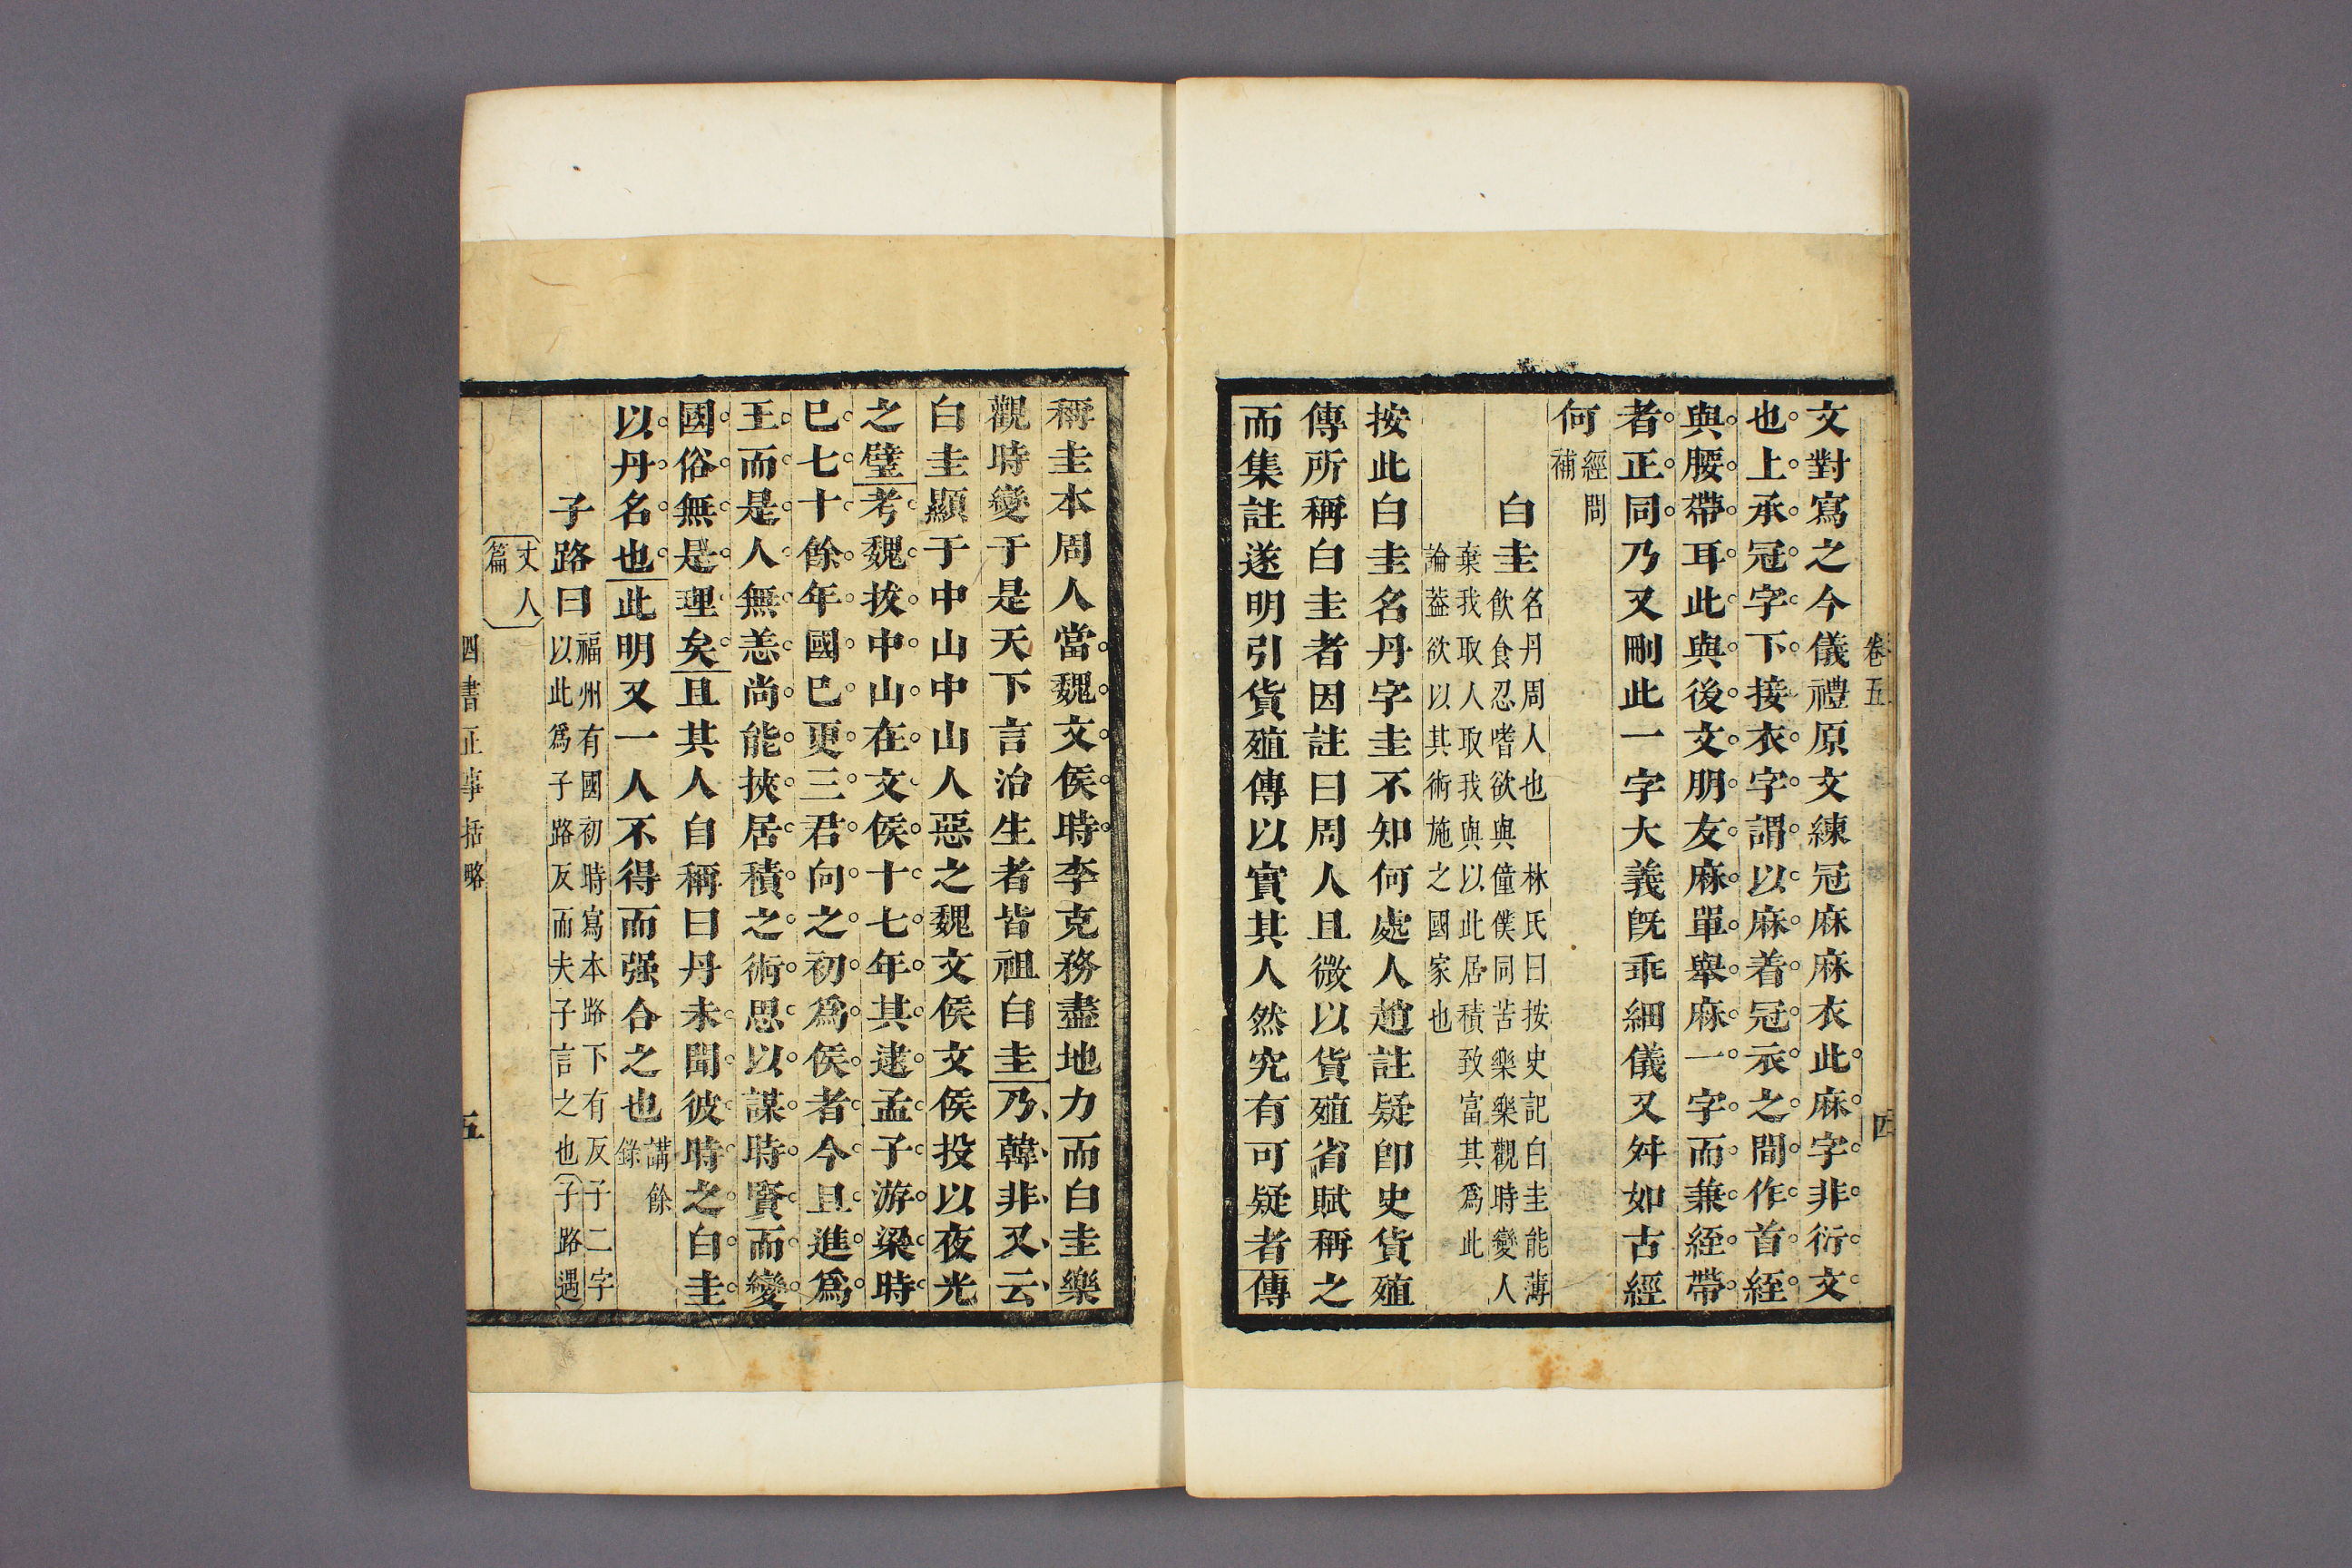 卷五
四
文對寫之今儀禮原文練冠麻麻衣此麻字非衍文
也上承冠字下接衣字謂以麻着冠衣之間作首絰
與腰帶耳此與後文朋友麻單舉麻一字而兼絰帶
者正同乃又刪此一字大義旣乖細儀又舛如古經
何
經問
補
白圭
名丹周人也 林氏曰按史記白圭能薄
飲食忍嗜欲與僮僕同苦樂樂觀時變人
棄我取人取我與以此居積致富其爲此
論葢欲以其術施之國家也
按此白圭名丹字圭不知何處人趙註疑卽史貨殖
傳所稱白圭者因註曰周人且微以貨殖省賦稱之
而集註遂明引貨殖傳以實其人然究有可疑者傳
稱圭本周人當魏文侯時李克務盡地力而白圭樂
觀時變于是天下言治生者皆祖白圭乃韓非又云
白圭顯于中山中山人惡之魏文侯文侯投以夜光
之璧考魏拔中山在文侯十七年其逮孟子游梁時
已七十餘年國已更三君向之初爲侯者今且進爲
王而是人無恙尚能挾居積之術思以謀時賢而變
國俗無是理矣且其人自稱曰丹未聞彼時之白圭
以丹名也此明又一人不得而强合之也
講餘
錄
子路曰
福州有國初時寫本路下有反子二字
以此爲子路反而夫子言之也(子路遇
丈人
篇)
四書正事括略
五